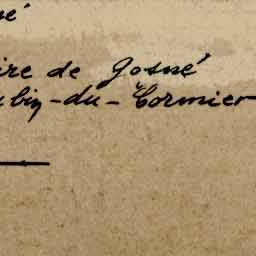 é
ire de Gosné
ubin-du-Cormier